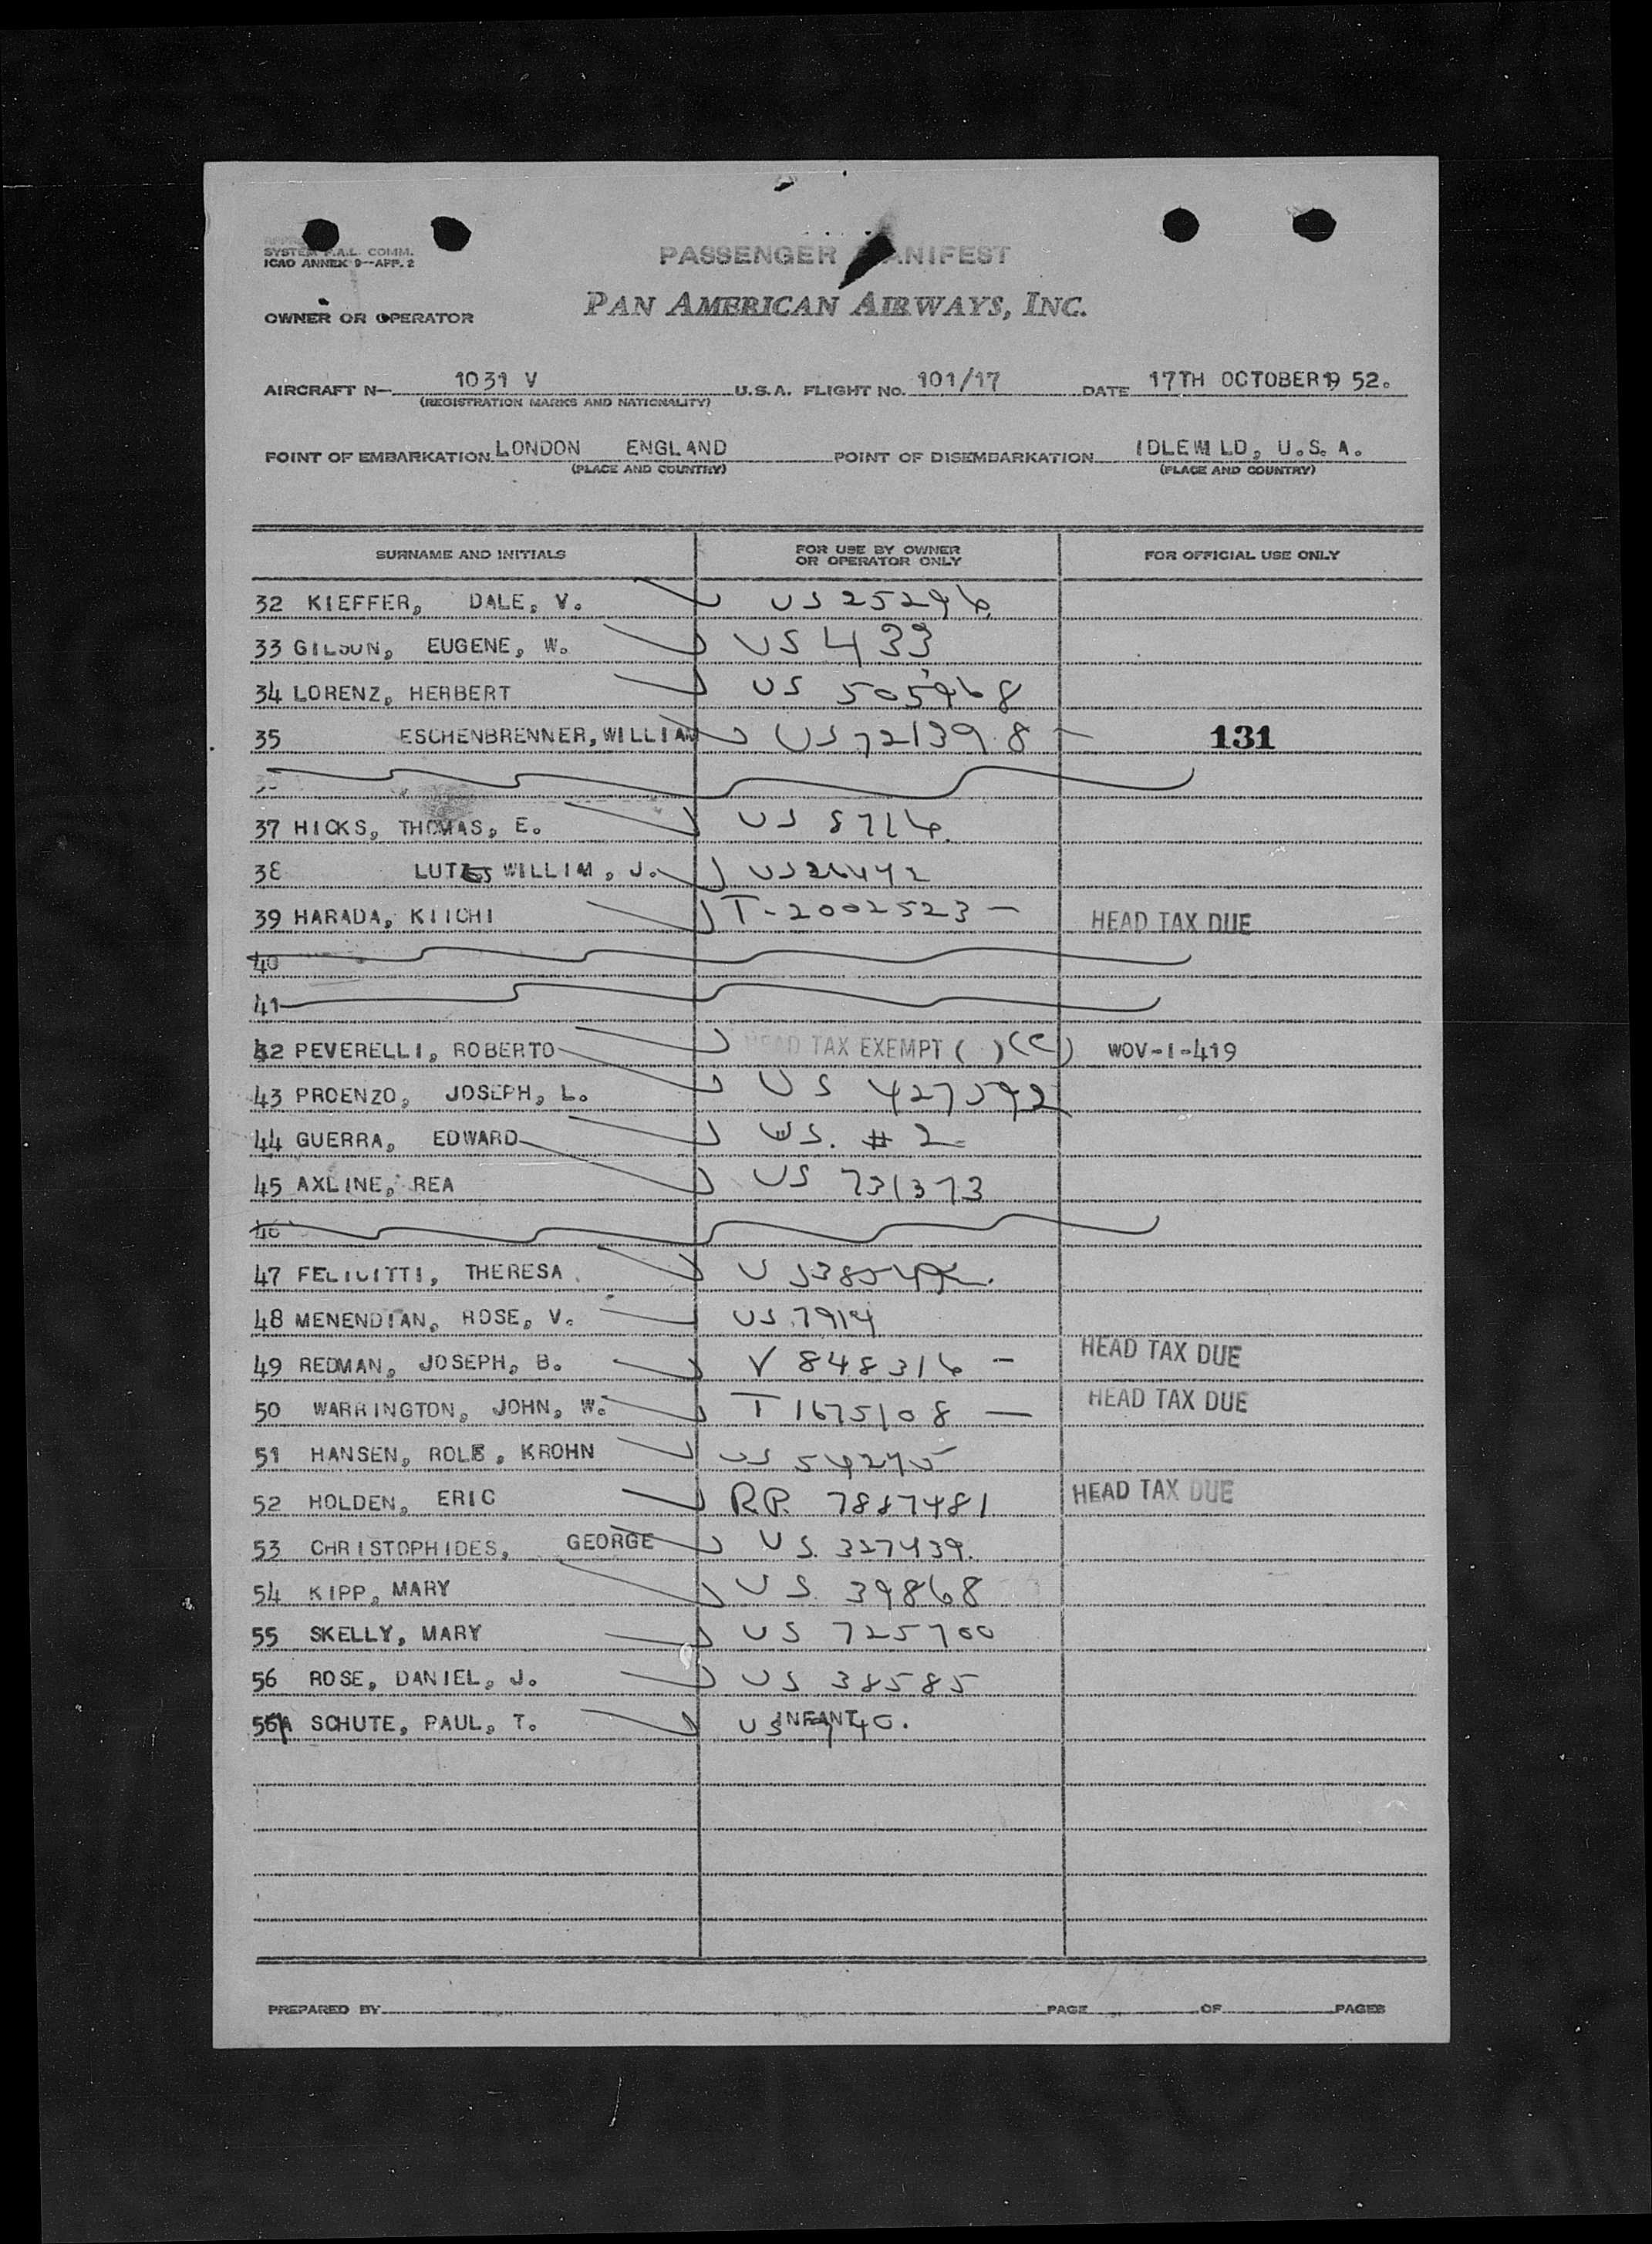 SYSTEM F.A.L. COMM.
ICAO ANNEX 9--APP. 2
PASSENGER MANIFEST
OWNER OR OPERATOR PAN AMERICAN AIRWAYS, INC.
AIRCRAFT N- 1031 V U.S.A. FLIGHT No. 101/17 DATE 17TH OCTOBER 19 52.
(REGISTRATION MARKS AND NATIONALITY)
POINT OF EMBARKATION LONDON ENGLAND POINT OF DISEMBARKATION IDLEWILD, U.S.A.
(PLACE AND COUNTRY) (PLACE AND COUNTRY)
SURNAME AND INITIALS FOR USE BY OWNER OR OPERATOR ONLY FOR OFFICIAL USE ONLY
32 KIEFFER, DALE, V. US 25296
33 GILSON, EUGENE, W. US 433
34 LORENZ, HERBERT US 505968
35 ESCHENBRENNER, WILLIAM US 721398 - 131
37 HICKS, THOMAS, E. US 8716
38 LUTES WILLIM, J. US
39 HARADA, KIICHI T-2002523 - HEAD TAX DUE
40
41
42 PEVERELLI, ROBERTO HEAD TAX EXEMPT ( ) (C) WOV-I-419
43 PROENZO, JOSEPH, L. US 427592
44 GUERRA, EDWARD US. # 2
45 AXLINE, REA US 731373
46
47 FELICITTI, THERESA US
48 MENENDIAN, ROSE, V. US 7914
49 REDMAN, JOSEPH, B. V 848316 - HEAD TAX DUE
50 WARRINGTON, JOHN, W. T 1675108 - HEAD TAX DUE
51 HANSEN, ROLF, KROHN US 54245
52 HOLDEN, ERIC R.P. 7887481 HEAD TAX DUE
53 CHRISTOPHIDES, GEORGE US. 327439.
54 KIPP, MARY US. 39868
55 SKELLY, MARY US 725700
56 ROSE, DANIEL, J. US 38585
56A SCHUTE, PAUL, T. INFANT US 740.
PREPARED BY PAGE OF PAGES